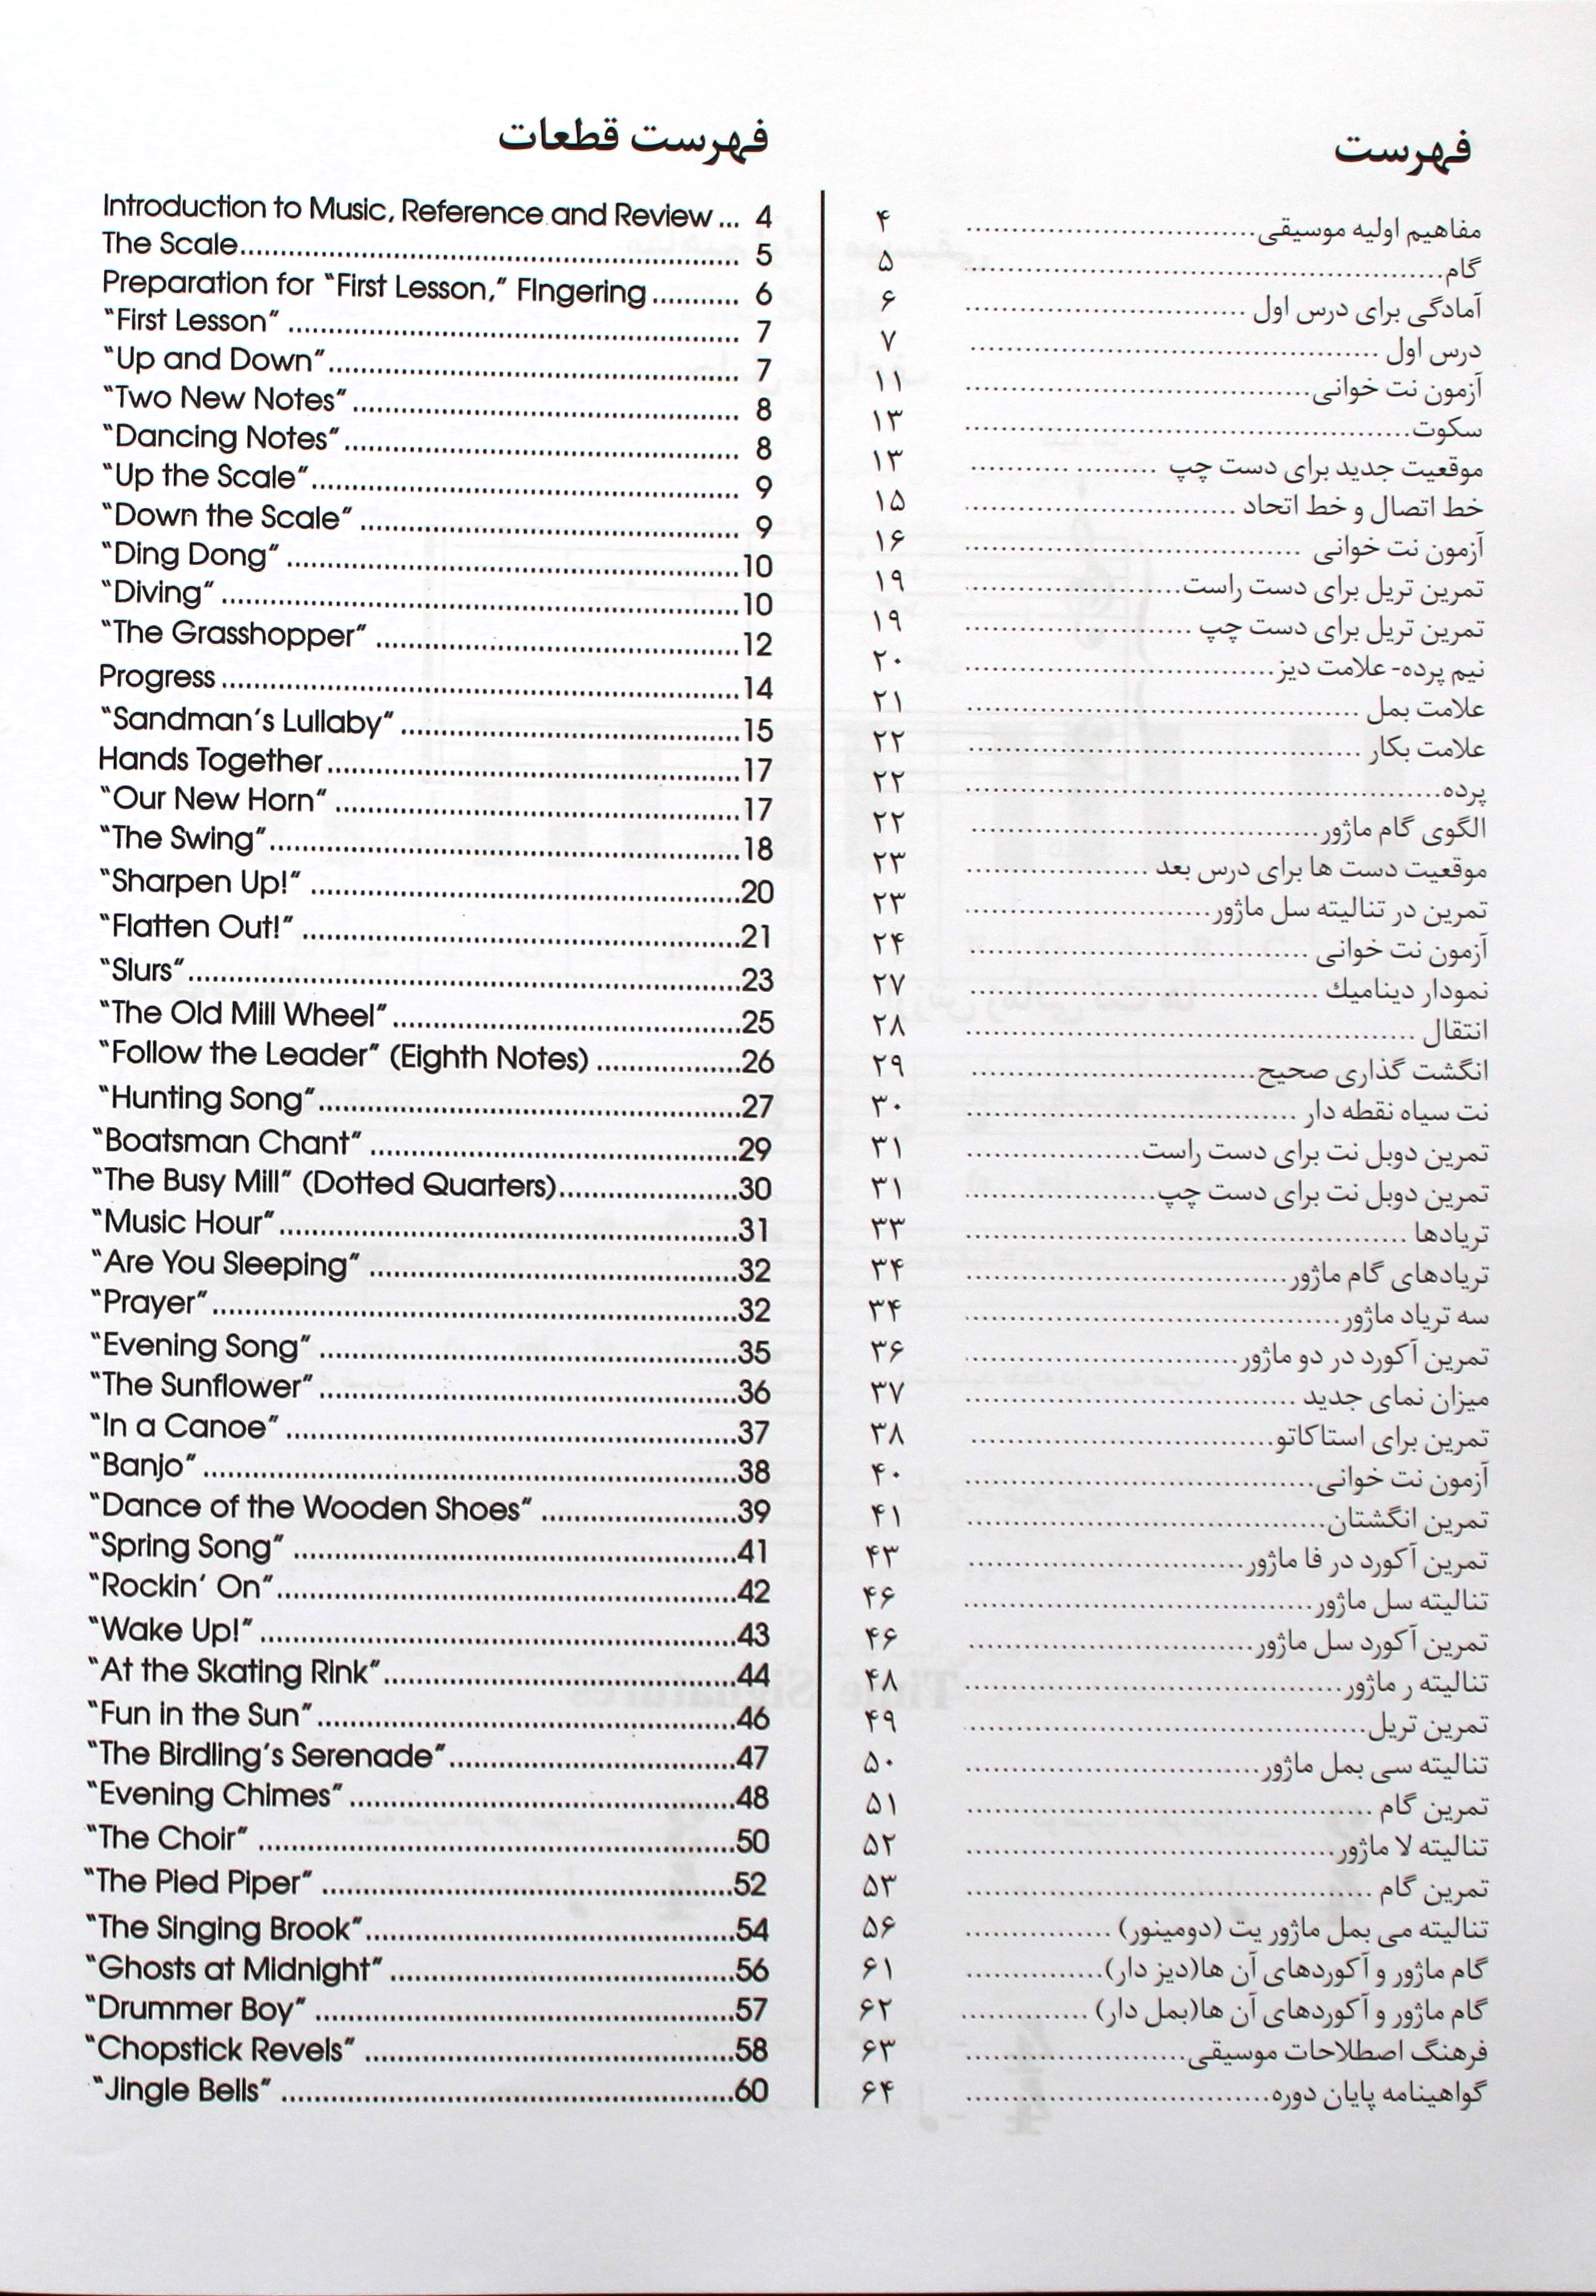 فهرست
مفاهیم اولیه موسیقی.............................. ۴
گام.............................. ۵
آمادگی برای درس اول .............................. ۶
درس اول .............................. ۷
آزمون نت خوانی.............................. ۱۱
سکوت.............................. ۱۳
موقعیت جدید برای دست چپ ......... ........... ۱۳
خط اتصال و خط اتحاد .............................. ۱۵
آزمون نت خوانی .............................. ۱۶
تمرین تریل برای دست راست.............................. ۱۹
تمرین تریل برای دست چپ .............................. ۱۹
نیم پرده- علامت دیز.............................. ۲۰
علامت بمل .............................. ۲۱
علامت بکار .............................. ۲۲
پرده.............................. ۲۲
الگوی گام ماژور.............................. ۲۲
موقعیت دست ها برای درس بعد .................... ۲۳
تمرین در تنالیته سل ماژور.............................. ۲۳
آزمون نت خوانی .............................. ۲۴
نمودار دینامیك .............................. ۲۷
انتقال .............................. ۲۸
انگشت گذاری صحیح.............................. ۲۹
نت سیاه نقطه دار .............................. ۳۰
تمرین دوبل نت برای دست راست.................... ۳۱
تمرین دوبل نت برای دست چپ.................... ۳۱
تریادها .............................. ۳۳
تریادهای گام ماژور.............................. ۳۴
سه تریاد ماژور.............................. ۳۴
تمرین آکورد در دو ماژور.............................. ۳۶
میزان نمای جدید .............................. ۳۷
تمرین برای استاکاتو.............................. ۳۸
آزمون نت خوانی.............................. ۴۰
تمرین انگشتان.............................. ۴۱
تمرین آکورد در فا ماژور.............................. ۴۳
تنالیته سل ماژور.............................. ۴۶
تمرین آکورد سل ماژور.............................. ۴۶
تنالیته ر ماژور.............................. ۴۸
تمرین تریل.............................. ۴۹
تنالیته سی بمل ماژور.............................. ۵۰
تمرین گام .............................. ۵۱
تنالیته لا ماژور.............................. ۵۲
تمرین گام .............................. ۵۳
تنالیته می بمل ماژور یت (دومینور) ................ ۵۶
گام ماژور و آکوردهای آن ها(دیز دار)................ ۶۱
گام ماژور و آکوردهای آن ها(بمل دار) .............. ۶۲
فرهنگ اصطلاحات موسیقی.......................... ۶۳
گواهینامه پایان دوره.............................. ۶۴
فهرست قطعات
Introduction to Music, Reference and Review ... 4
The Scale.............................. 5
Preparation for “First Lesson,” FIngering ........... 6
“First Lesson” .............................. 7
“Up and Down”.............................. 7
“Two New Notes” .............................. 8
“Dancing Notes”.............................. 8
“Up the Scale”.............................. 9
“Down the Scale” .............................. 9
“Ding Dong” ..............................10
“Diving” ..............................10
“The Grasshopper” ..............................12
Progress ..............................14
“Sandman’s Lullaby” ..............................15
Hands Together..............................17
“Our New Horn” ..............................17
“The Swing”..............................18
“Sharpen Up!” ..............................20
“Flatten Out!” ..............................21
“Slurs”..............................23
“The Old Mill Wheel” ..............................25
“Follow the Leader” (Eighth Notes) ..................26
“Hunting Song”..............................27
“Boatsman Chant” ..............................29
“The Busy Mill” (Dotted Quarters)......................30
“Music Hour”..............................31
“Are You Sleeping” ..............................32
“Prayer”..............................32
“Evening Song” ..............................35
“The Sunflower” ..............................36
“In a Canoe” ..............................37
“Banjo” ..............................38
“Dance of the Wooden Shoes” ........................39
“Spring Song” ..............................41
“Rockin’ On”..............................42
“Wake Up!” ..............................43
“At the Skating Rink”..............................44
“Fun in the Sun”..............................46
“The Birdling’s Serenade”..............................47
“Evening Chimes” ..............................48
“The Choir” ..............................50
“The Pied Piper” ..............................52
“The Singing Brook”..............................54
“Ghosts at Midnight” ..............................56
“Drummer Boy” ..............................57
“Chopstick Revels” ..............................58
“Jingle Bells” ..............................60